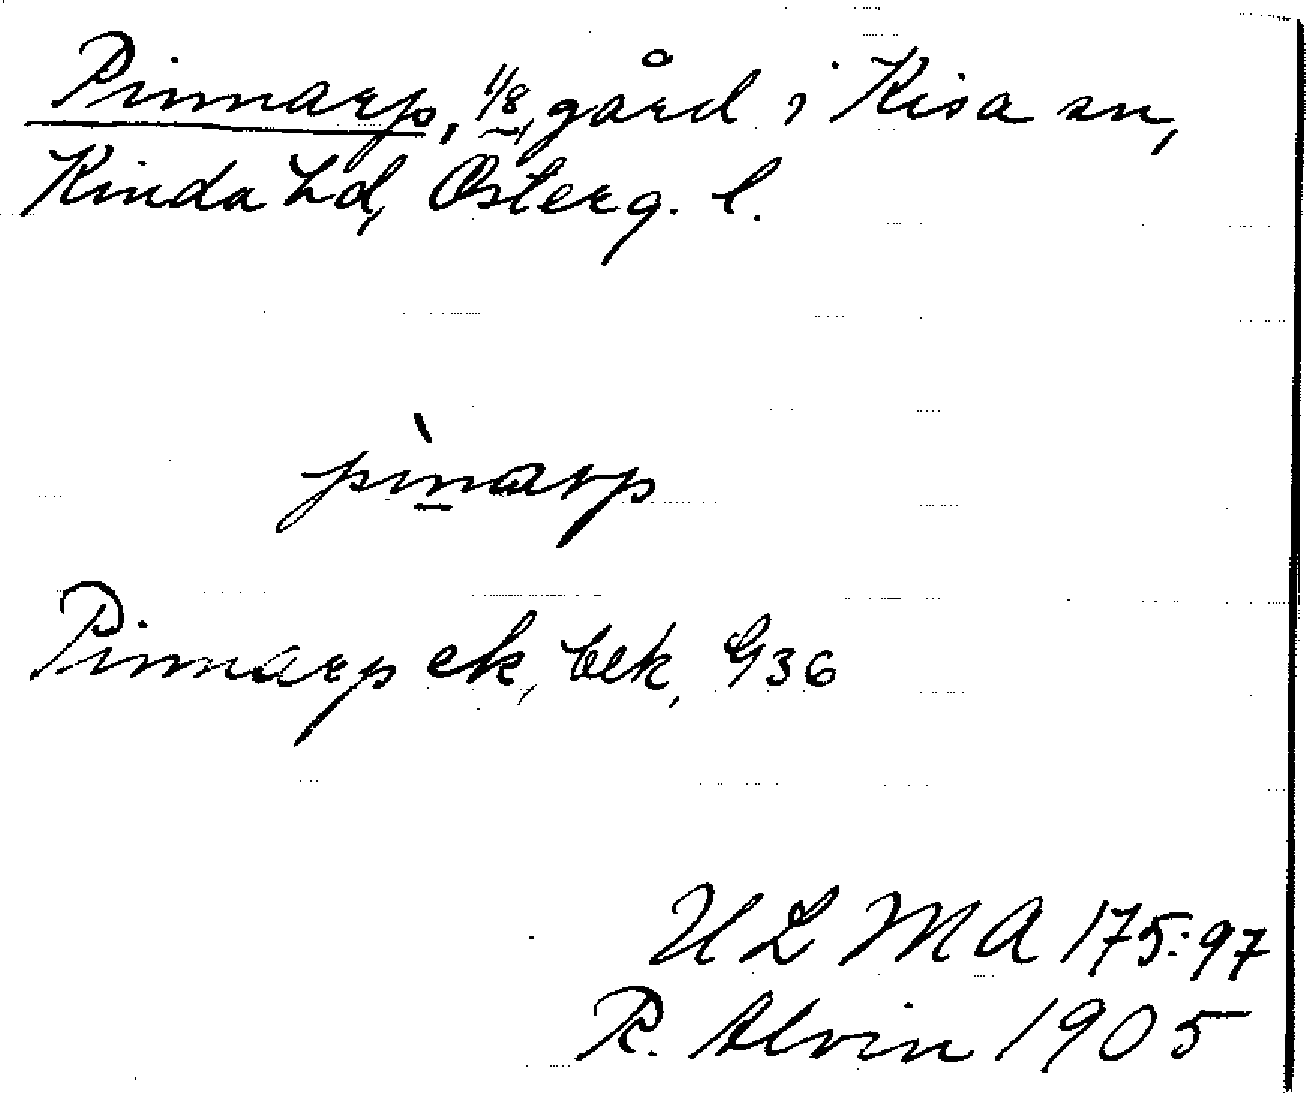 Pinnarp, 1/8, gård i Kisa sn,
Kinda hd, Österg. l.
pìnarp
Pinnarp ek, bek, G36
ULMA 175:97
R. Alvin 1905